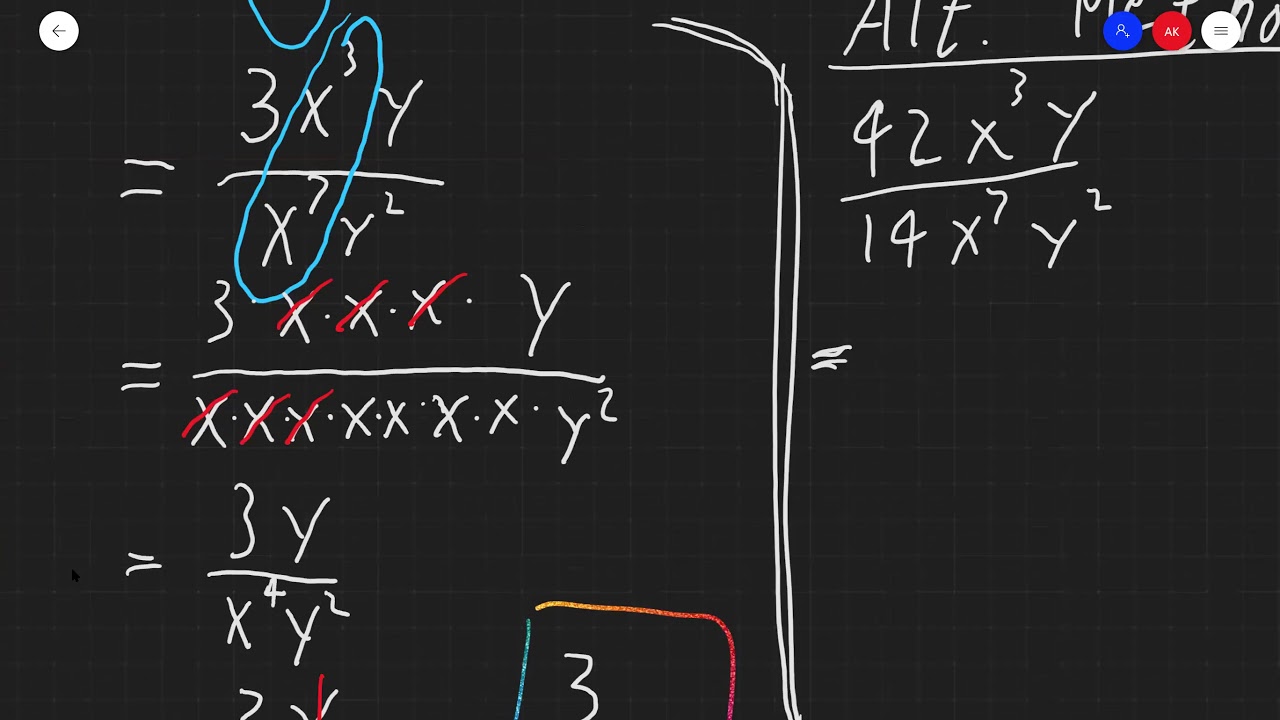 = 3x³y / x⁷y²
= 3 · x · x · x · y / x · x · x · x · x · x · x · y²
= 3y / x⁴y²
3
Alt.
AK
42x³y / 14x⁷y²
=